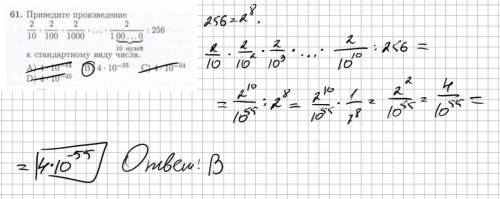 61. Приведите произведение
2/10 · 2/100 · 2/1000 · ... · 2/100...0 : 256
10 нулей
к стандартному виду числа.
A) 4·10⁻⁴⁴ B) 4·10⁻⁵⁵ C) 4·10⁻⁵⁴
D) 4·10⁻⁴⁵
256 = 2⁸.
2/10 · 2/10² · 2/10³ · ... · 2/10¹⁰ : 256 =
= 2¹⁰/10⁵⁵ : 2⁸ = 2¹⁰/10⁵⁵ · 1/2⁸ = 2²/10⁵⁵ = 4/10⁵⁵ =
= 4·10⁻⁵⁵ Ответ: B